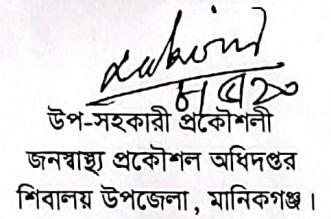 উপ-সহকারী প্রকৌশলী
জনস্বাস্থ্য প্রকৌশল অধিদপ্তর
শিবালয় উপজেলা, মানিকগঞ্জ।